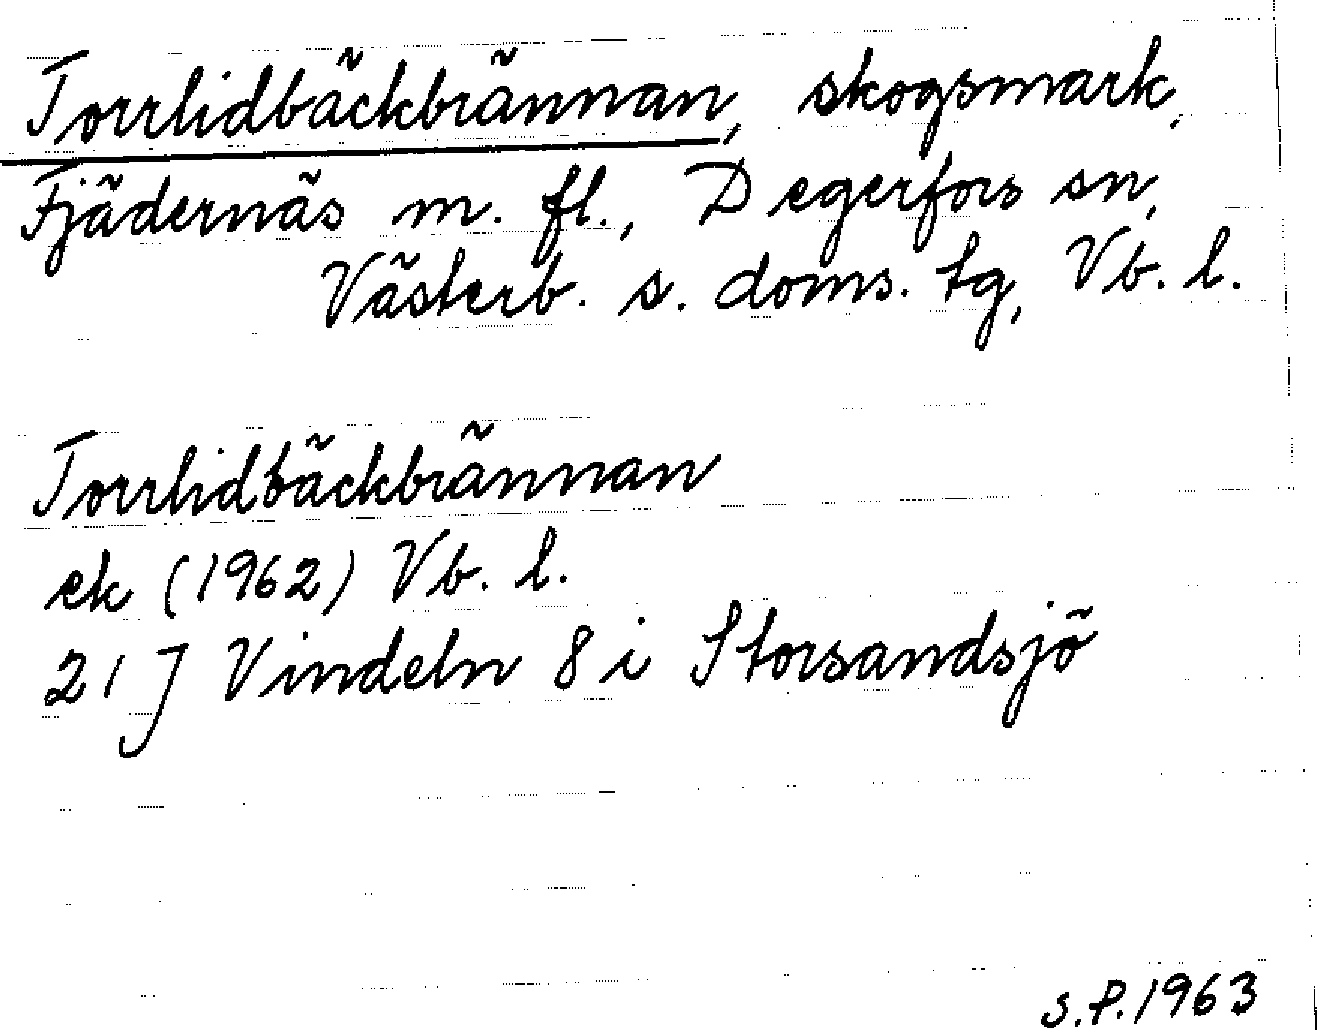 Torrlidbäckbrännan, skogsmark,
Fjädernäs m. fl., Degerfors sn,
Västerb. s. doms. tg, Vb. l.
Torrlidbäckbrännan
ek (1962) Vb. l.
21 J Vindeln 8 i Storsandsjö
S.P. 1963